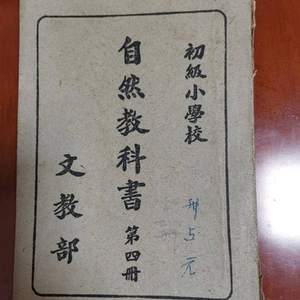 初級小學校
自然教科書 第四冊
文教部
5元